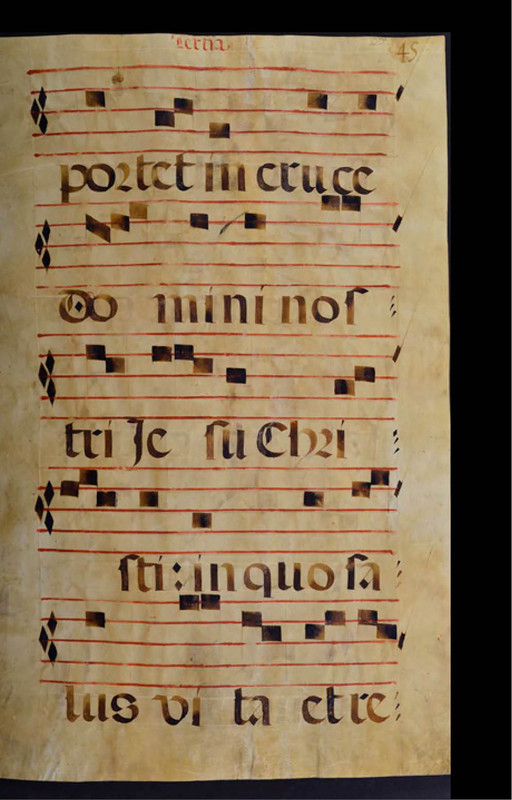 tertia 45
portet in cruce
Do mini nos
tri Je su Chri
sti: in quo sa
lus vi ta et re